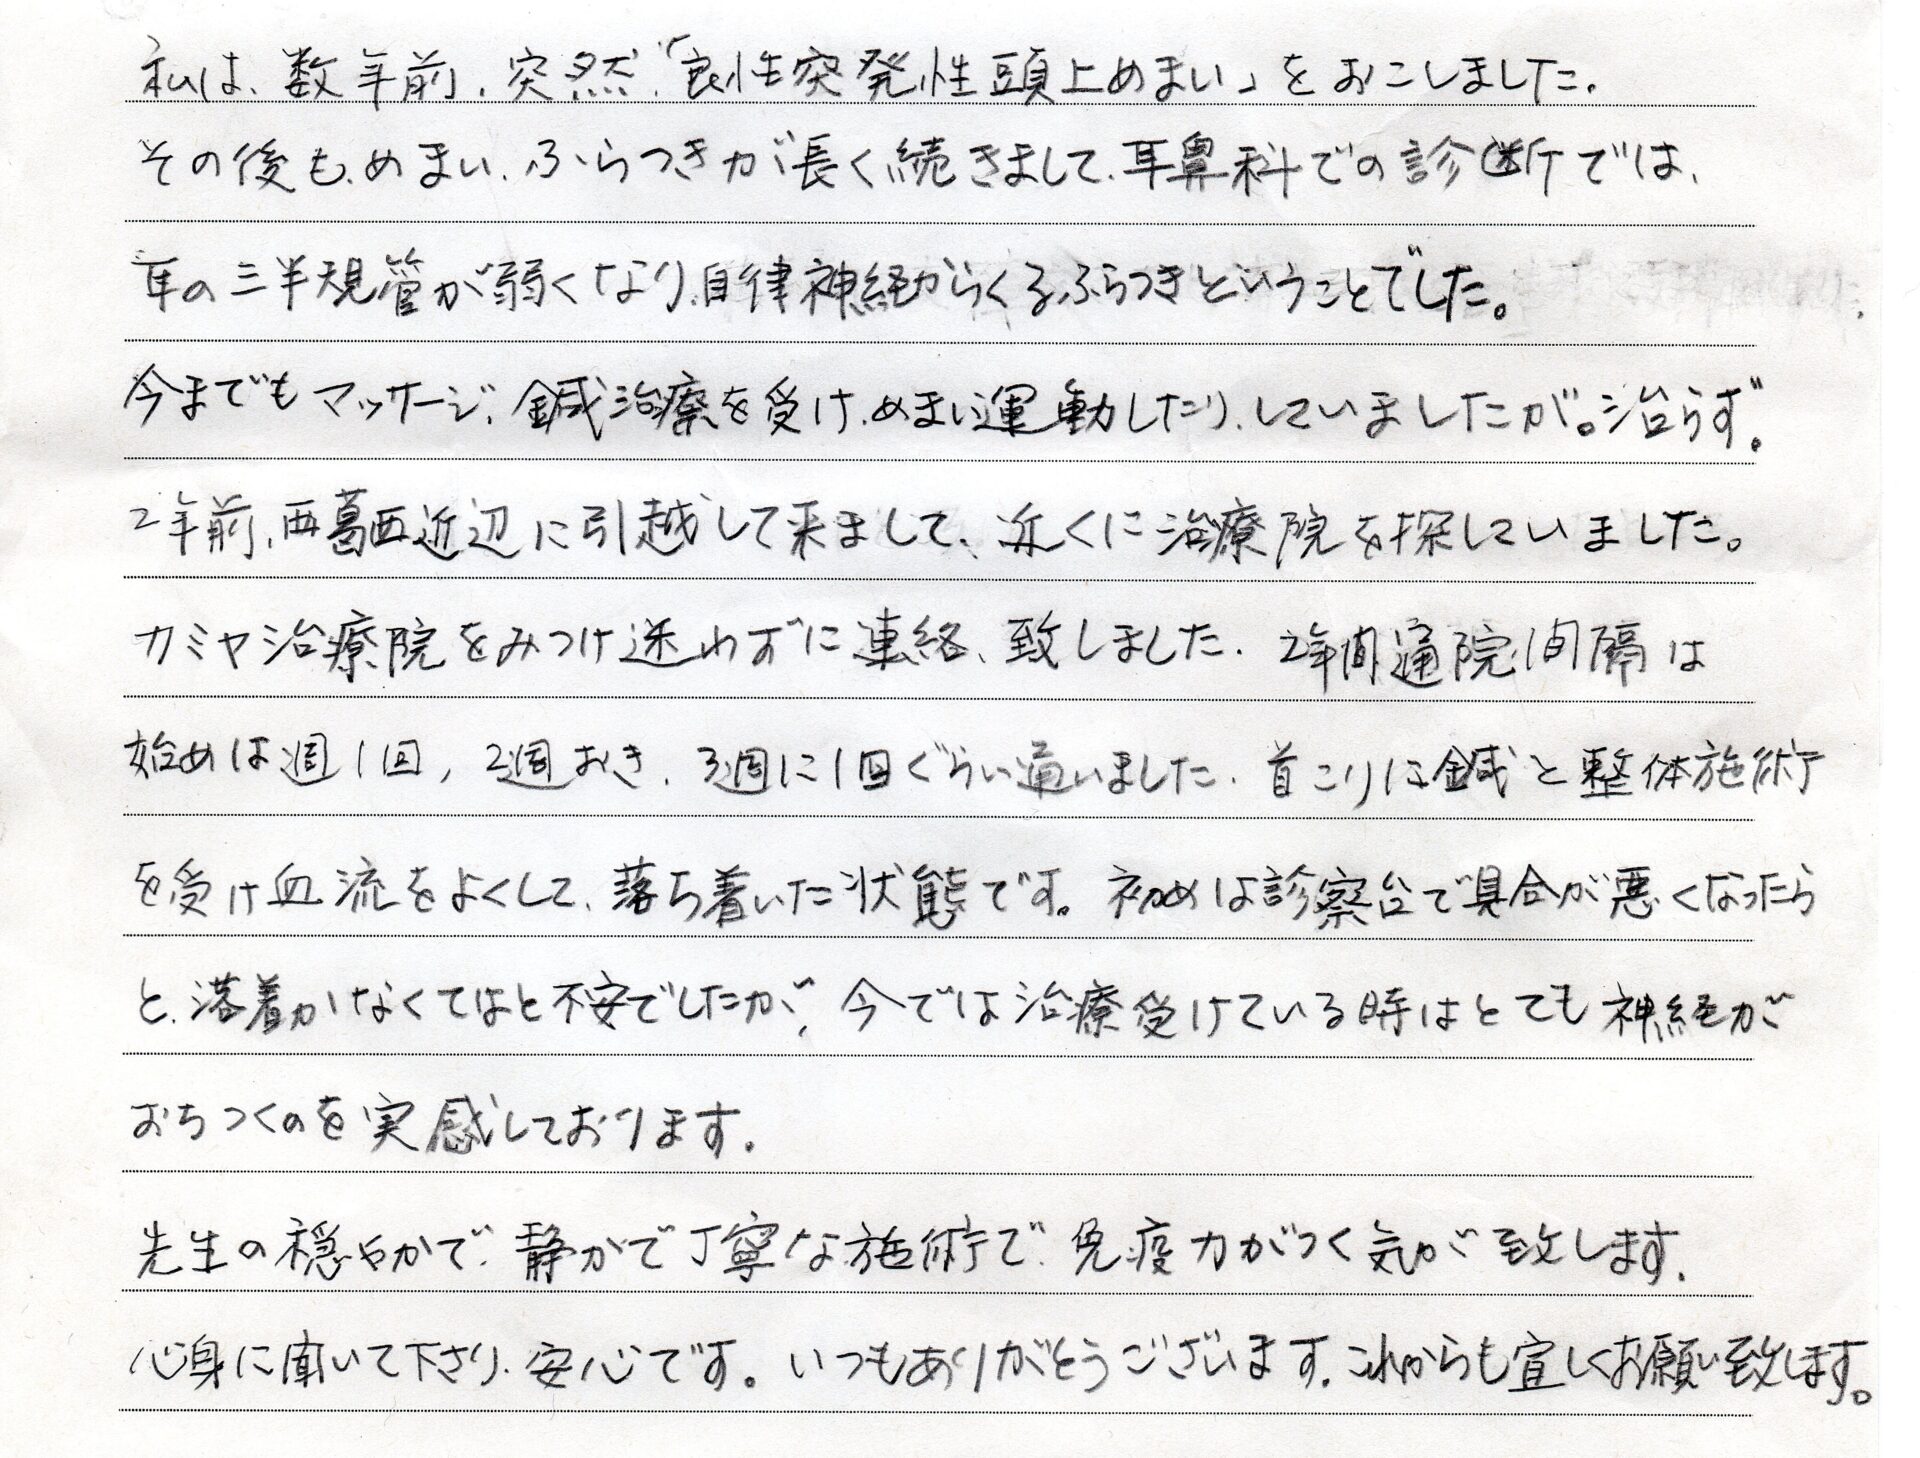 私は、数年前、突然「良性突発性頭上めまい」をおこしました。
その後も、めまい、ふらつきが長く続きまして、耳鼻科での診断では、
耳の三半規管が弱くなり、自律神経からくるふらつきということでした。
今までもマッサージ、鍼治療を受け、めまい運動したり、していましたが。治らず。
2年前、西葛西近辺に引越して来まして、近くに治療院を探していました。
カミヤ治療院をみつけ迷わずに連絡、致しました。2年間、通院、間隔は
始めは週1回、2週おき、3週に1回ぐらい通いました。首こりに鍼と整体施術
を受け血流をよくして、落ち着いた状態です。初めは診察台で具合が悪くなったら
と、落着かなくてはと不安でしたが、今では治療受けている時はとても神経が
おちつくのを実感しております。
先生の穏やかで、静かで丁寧な施術で、免疫力がつく気が致します。
心身に聞いて下さり、安心です。いつもありがとうございます。これからも宜しくお願い致します。